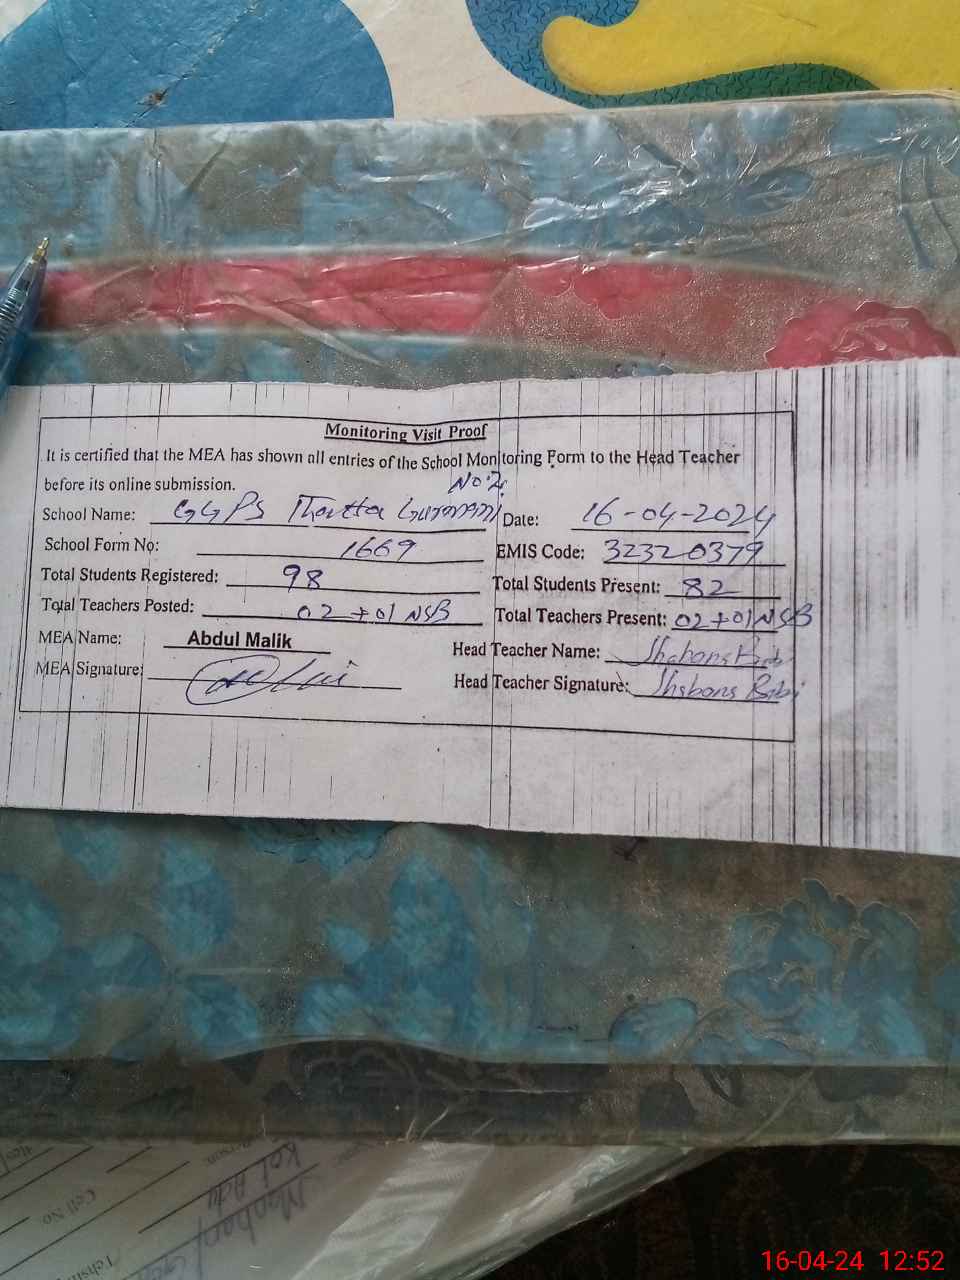 Monitoring Visit Proof
It is certified that the MEA has shown all entries of the School Monitoring Form to the Head Teacher
before its online submission.
No.2
School Name: GGPS Thatta Gurmani Date: 16-04-2024
School Form No: 1669 EMIS Code: 32320379
Total Students Registered: 98 Total Students Present: 82
Total Teachers Posted: 02+01 NSB Total Teachers Present: 02+01 NSB
MEA Name: Abdul Malik Head Teacher Name: Shabana Bibi
MEA Signature: Head Teacher Signature: Shabana Bibi
Kot Adu
Cell No.
16-04-24 12:52